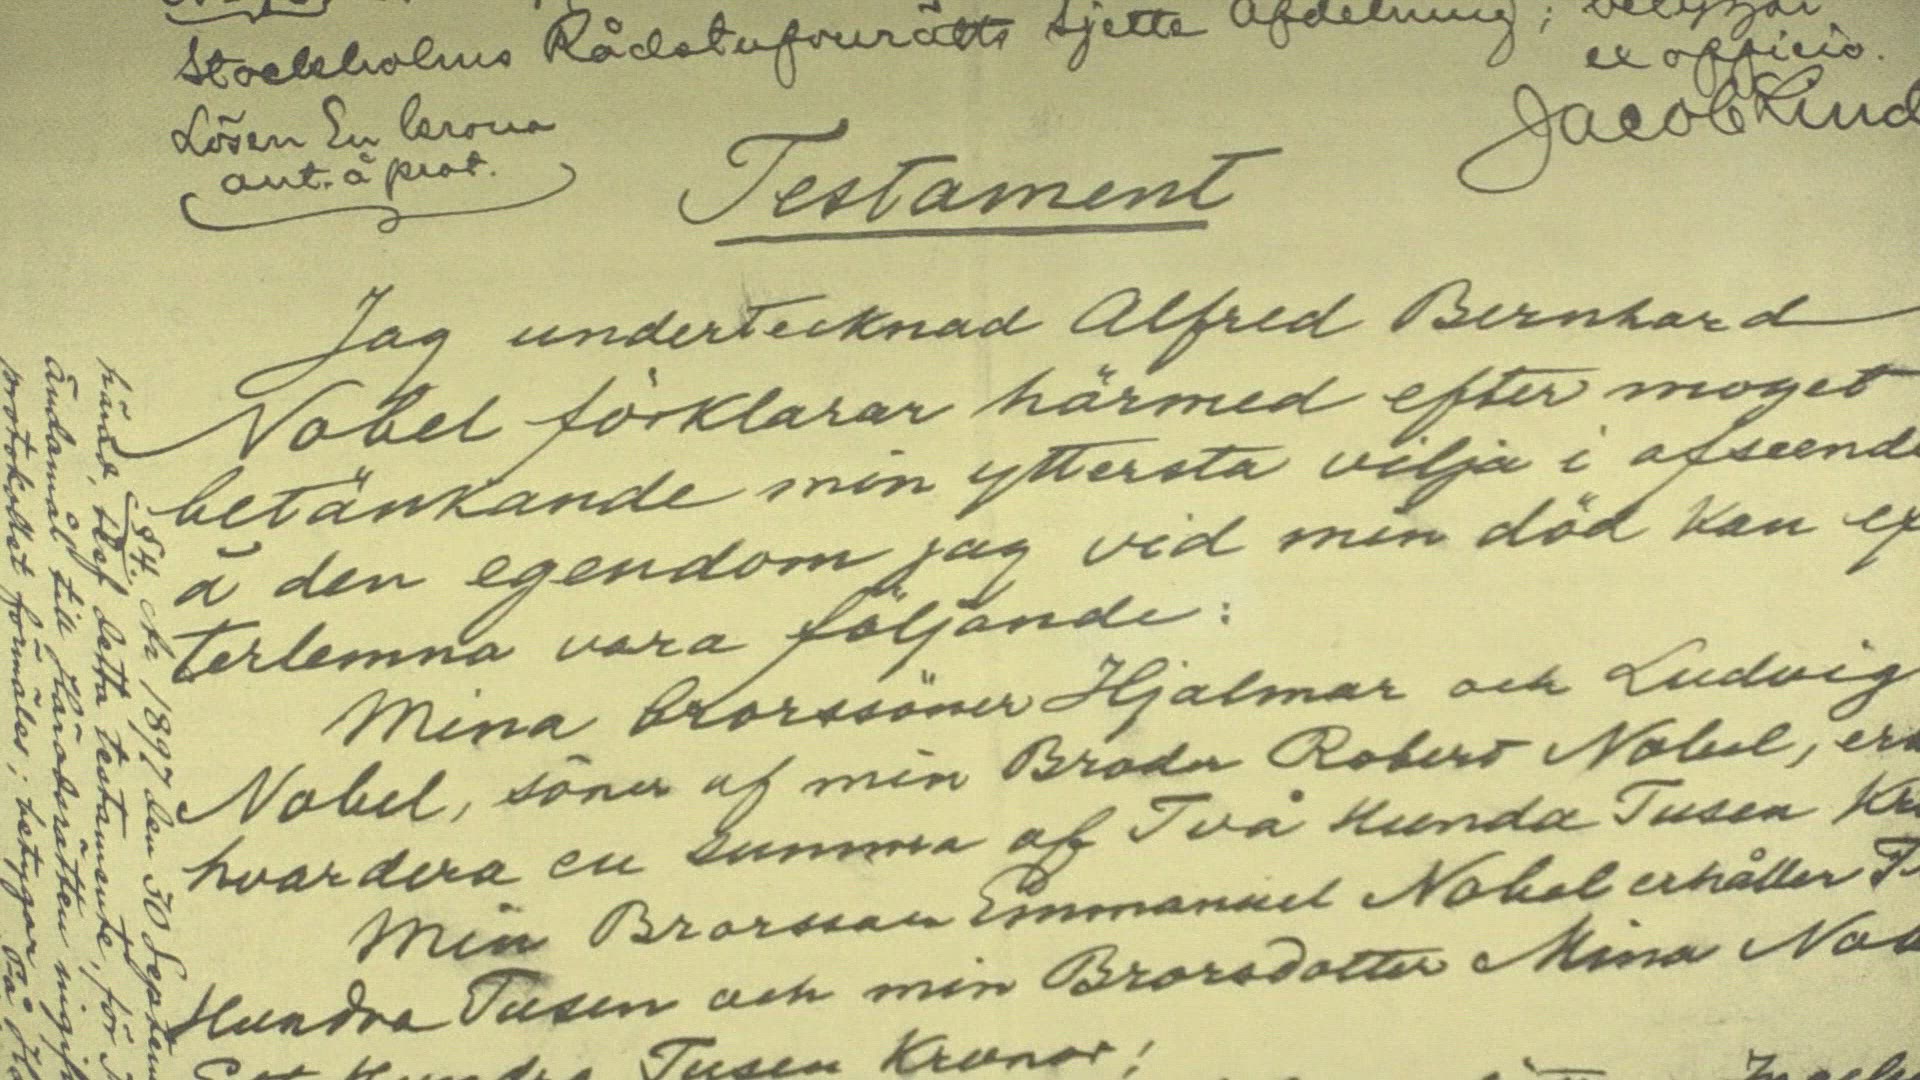 Stockholms Rådstufvurätts sjette Afdelning; betygar
ex officio.
Jacob Lind
Lösen En krona
ant. å prot.
Testament
Jag undertecknad Alfred Bernhard
Nobel förklarar härmed efter moget
betänkande min yttersta vilja i afseende
å den egendom jag vid min död kan ef
terlemna vara följande:
Mina brorssöner Hjalmar och Ludvig
Nobel, söner af min Broder Robert Nobel, er
hvardera en summa af Två Hundra Tusen Kr
Min Brorsson Emmanuel Nobel erhåller T
Hundra Tusen och min Brorsdotter Mina Nob
Ett Hundra Tusen Kronor;
§ 4. År 1897 den 30 Septem
händ, blef detta testamente, för
ändamål till Häradsrätten ingif
protokollet förmäler; betygar. På Hä